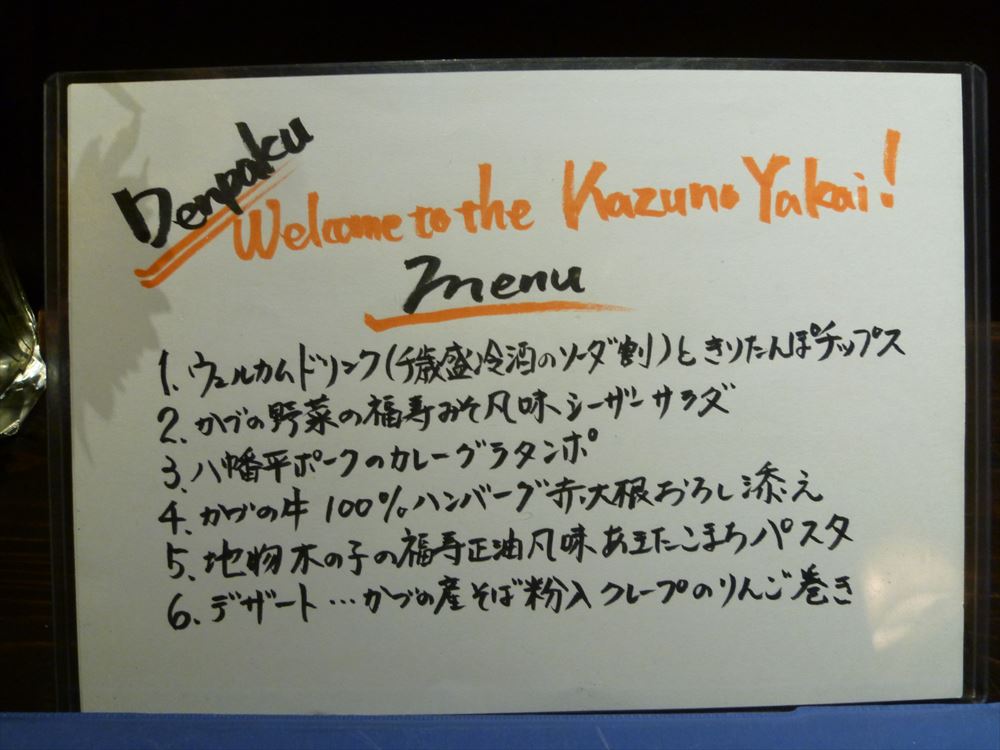 Denpaku
Welcome to the Kazuno Yakai!
Menu
1. ウェルカムドリンク(千歳盛冷酒のソーダ割)ときりたんぽチップス
2. かづの野菜の福寿みそ風味シーザーサラダ
3. 八幡平ポークのカレーグラタンポ
4. かづの牛100%ハンバーグ赤大根おろし添え
5. 地物木の子の福寿正油風味あきたこまちパスタ
6. デザート…かづの産そば粉入クレープのりんご巻き